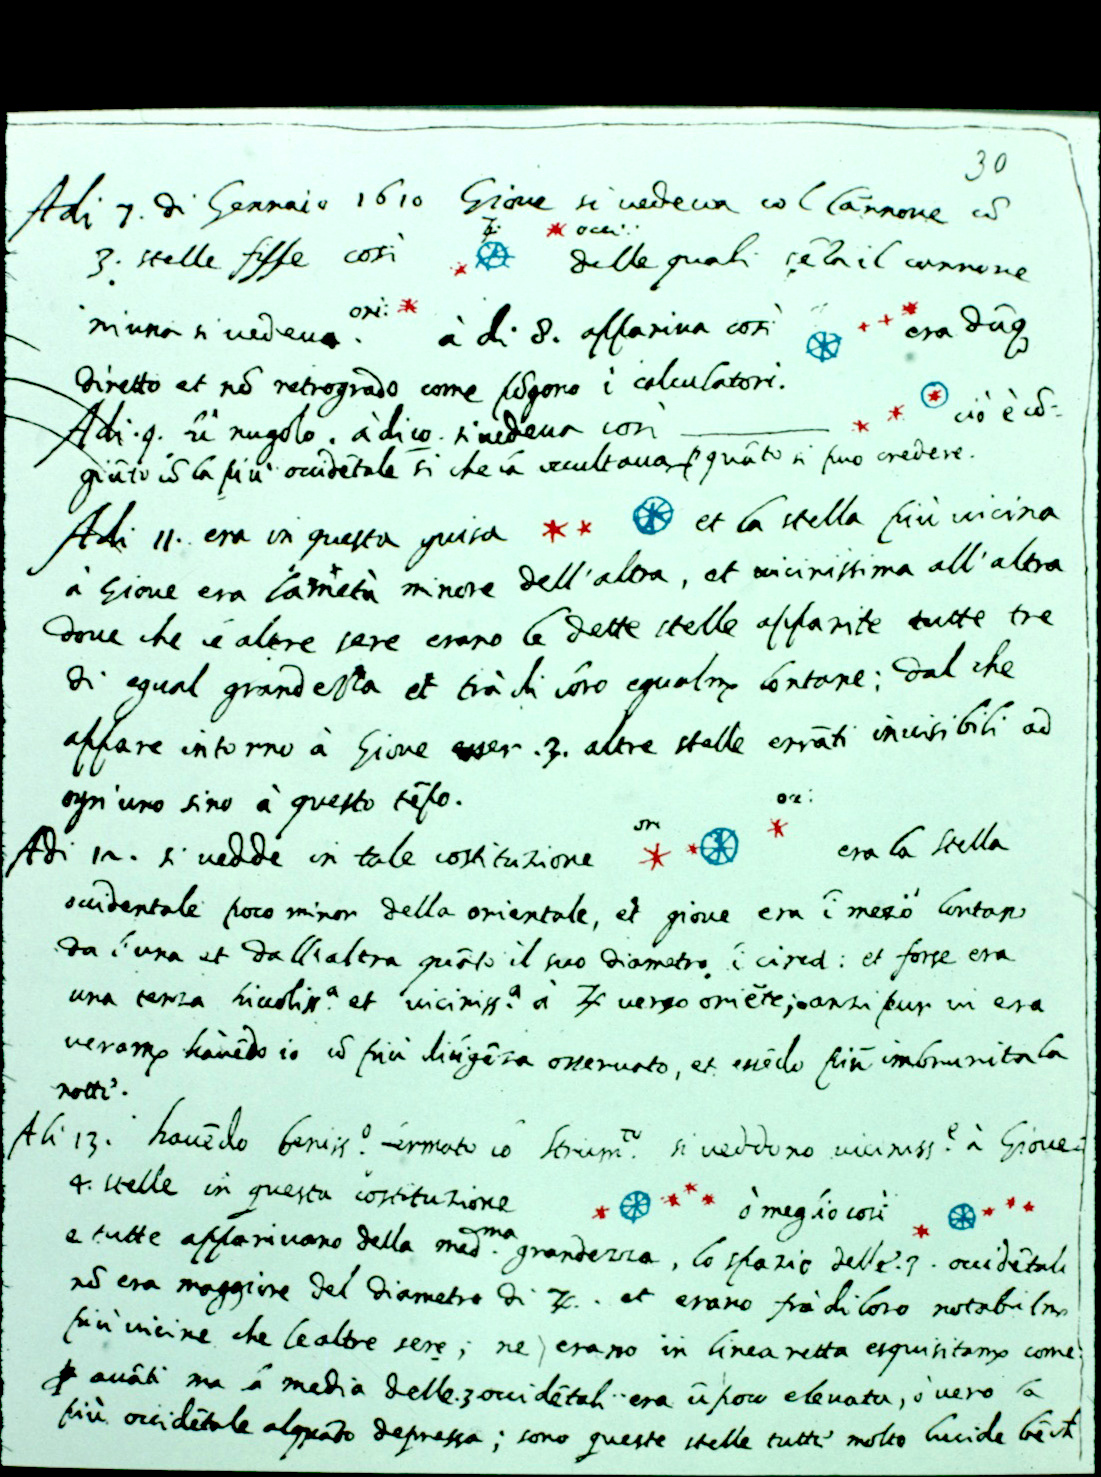 30
Adi 7. di Gennaio 1610 Giove si vedeva col Cannone cō
3. stelle fisse così ♃ occi: delle quali sēza il cannone
niuna si vedeva. ori: à di 8. appariva così era dūq
diretto et nō retrogrado come pōgono i calculatori.
Adi. 9. fù nugolo. à di 10. si vedeva così ciò è cō-
giūto cō la più occidētale sì che la occultava p quāto si può credere.
Adi 11. era in questa guisa et la stella più vicina
à Giove era la metà minore dell'altra, et vicinissima all'altra
dove che le altre sere erano le dette stelle apparite tutte tre
di egual grandezza et trà di loro egualm lontane; dal che
appare intorno à Giove esser .3. altre stelle errāti invisibili ad
ogn'uno sino à questo tēpo.
Adi 12. si vedde in tale costituzione ori occ: era la stella
occidentale poco minor della orientale, et giove era ī mezo lontan
da l'una et dall'altra quāto il suo diametro ī circa: et forse era
una terza picciolissᵃ. et vicinissᵃ. à ♃ verso oriēte; anzi pur vi era
veram havēdo io cō più diligēza osservato, et essēdo più imbrunita la
notte.
Adi 13. havēdo benissᵒ. fermato lo strumᵗᵒ. si veddono vicinissᵉ. à Giove
4. stelle in questa costituzione ò meglio così
e tutte apparivano della medᵐᵃ. grandezza, lo spazio delle .3. occidētali
nō era maggiore del diametro di ♃. et erano frà di loro notabilm
più vicine che le altre sere; ne erano in linea retta esquisitam come
p avāti ma la media delle .3 occidētali era ū poco elevata, ò vero la
più occidētale alquāto depressa; sono queste stelle tutte molto lucide bēch